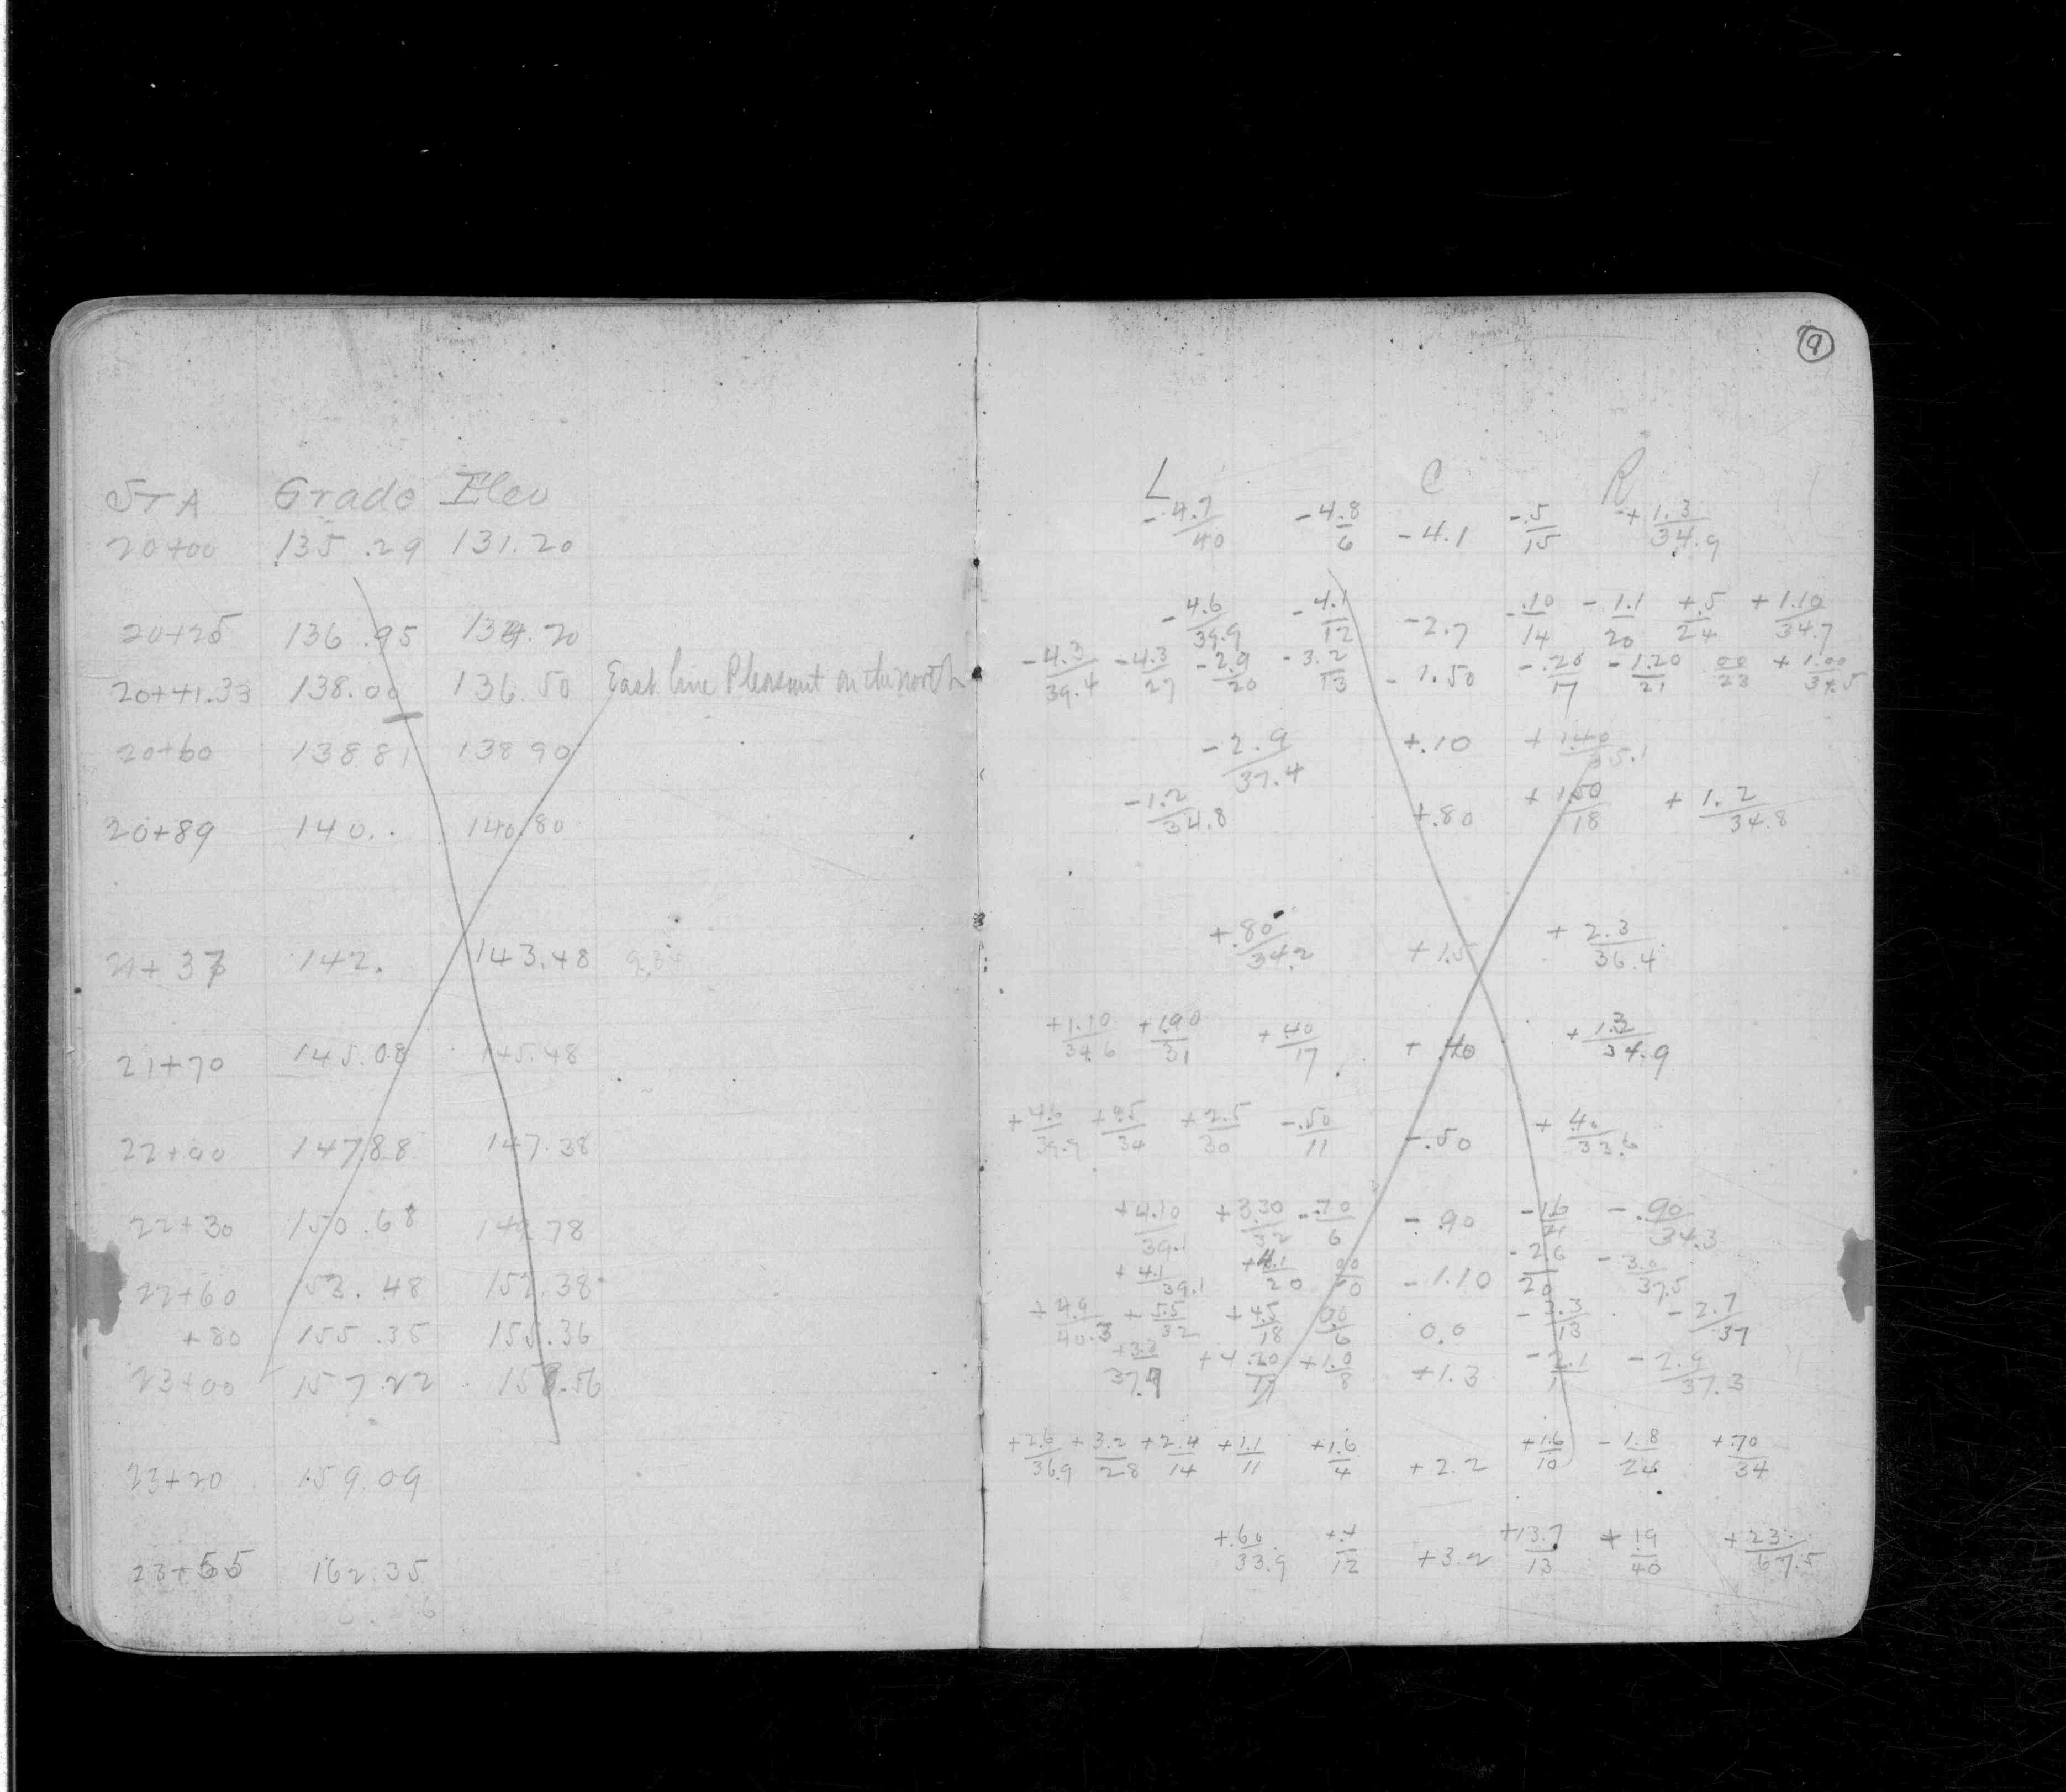 9
STA Grade Elev
20+00 135.29 131.20
20+25 136.95 134.20
20+41.33 138.00 136.50 East line Pleasant on the north
20+60 138.81 138.90
20+89 140.. 140.80
21+37 142. 143.48
21+70 145.08 145.48
22+00 147.88 147.38
22+30 150.68 149.78
22+60 153.48 152.38
+80 155.35 155.36
23+00 157.22 158.56
23+20 159.09
23+55 162.35
L C R
-4.7/40 -4.8/6 -4.1 -.5/15 +1.3/34.9
-4.6/39.9 -4.1/12 -2.7 -.10/14 -1.1/20 +.5/24 +1.10/34.7
-4.3/39.4 -4.3/27 -2.9/20 -3.2/13 -1.50 -.20/17 -1.20/21 00/23 +1.00/34.5
-2.9/37.4 +.10 +1.40/35.1
-1.2/34.8 +.80 +1.50/18 +1.2/34.8
+.80/34.2 +1.5 +2.3/36.4
+1.10/34.6 +1.90/31 +.40/17 +.40 +1.3/34.9
+4.6/39.9 +4.5/34 +2.5/30 -.50/11 -.50 +.40/33.6
+4.10/39.1 +3.30/32 -.70/6 -.90 -1.6/21 -.90/34.3
+4.1/39.1 +4.1/20 00/10 -1.10 -2.6/20 -3.0/37.5
+4.9/40.3 +5.5/32 +4.5/18 00/6 0.0 -3.3/13 -2.7/37
+3.3/37.9 +1.0/8 +1.3 -2.1/11 -2.9/37.3
+2.6/36.9 +3.2/28 +2.4/14 +1.1/11 +1.6/4 +2.2 +1.6/10 -1.8/24 +.70/34
+.60/33.9 +.4/12 +3.2 +13.7/13 +19/40 +23./67.5